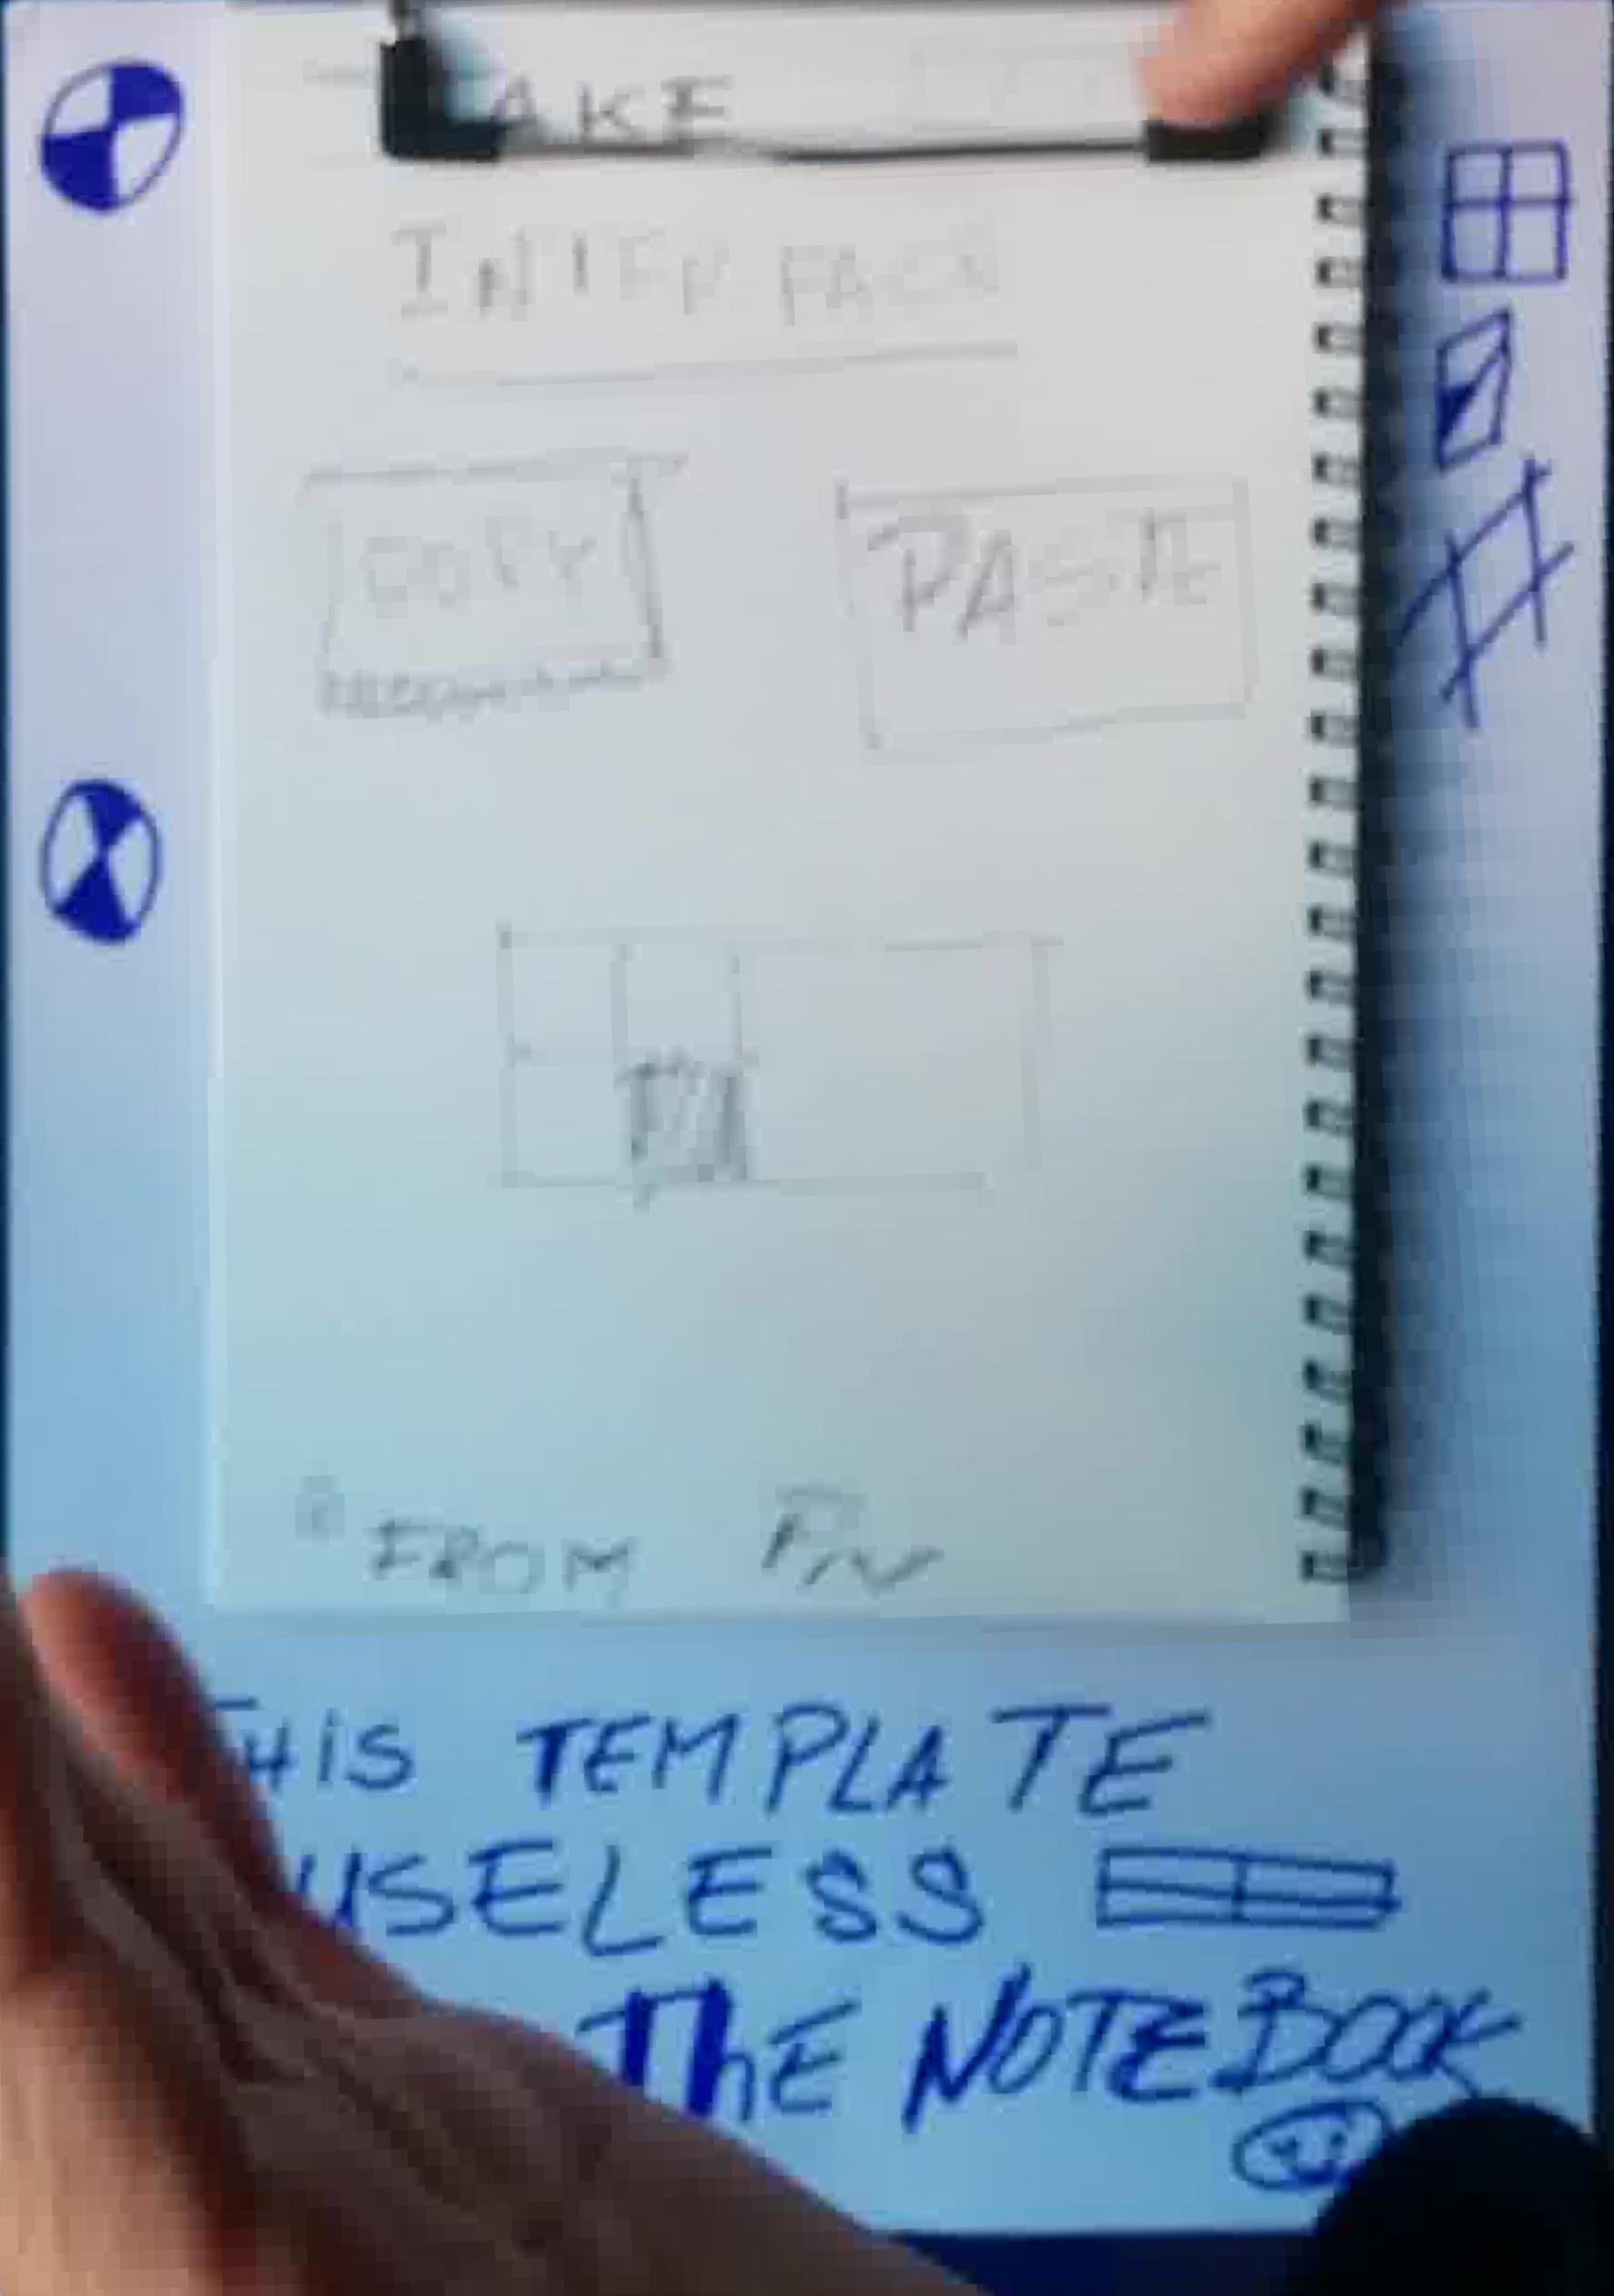 AKE
INTERFACE
COPY PASTE
FROM
THIS TEMPLATE
USELESS
ThE NOTEBOOK